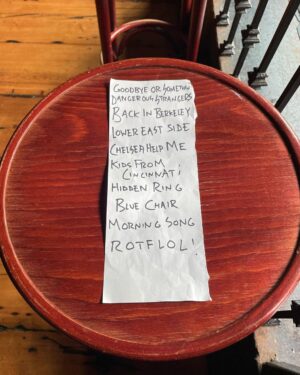 GOODBYE OR SOMETHIN
DANGEROUS STRANGERS
BACK IN BERKELEY
LOWER EAST SIDE
CHELSEA HELP ME
KIDS FROM
CINCINNATI
HIDDEN RING
BLUE CHAIR
MORNING SONG
ROTFLOL!